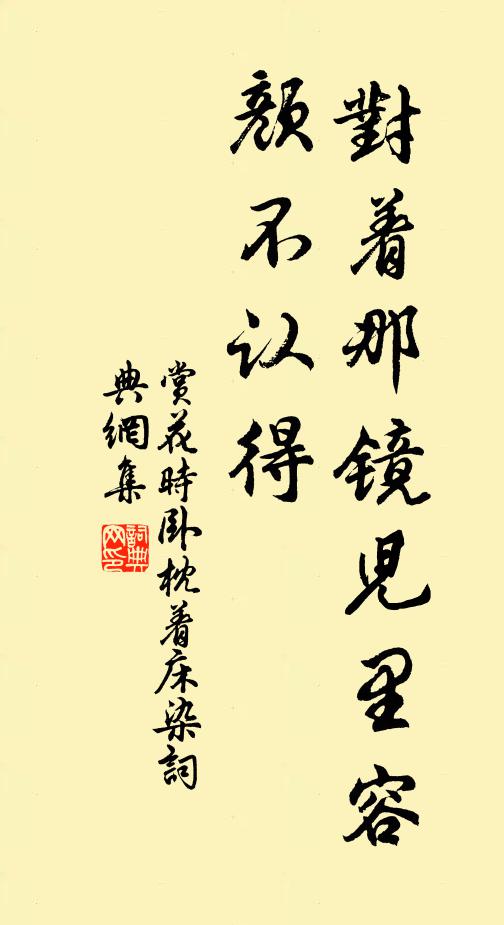 對着那镜児里容
颜不认得
赏花時卧枕着床染詞
典網集
詞典
网印